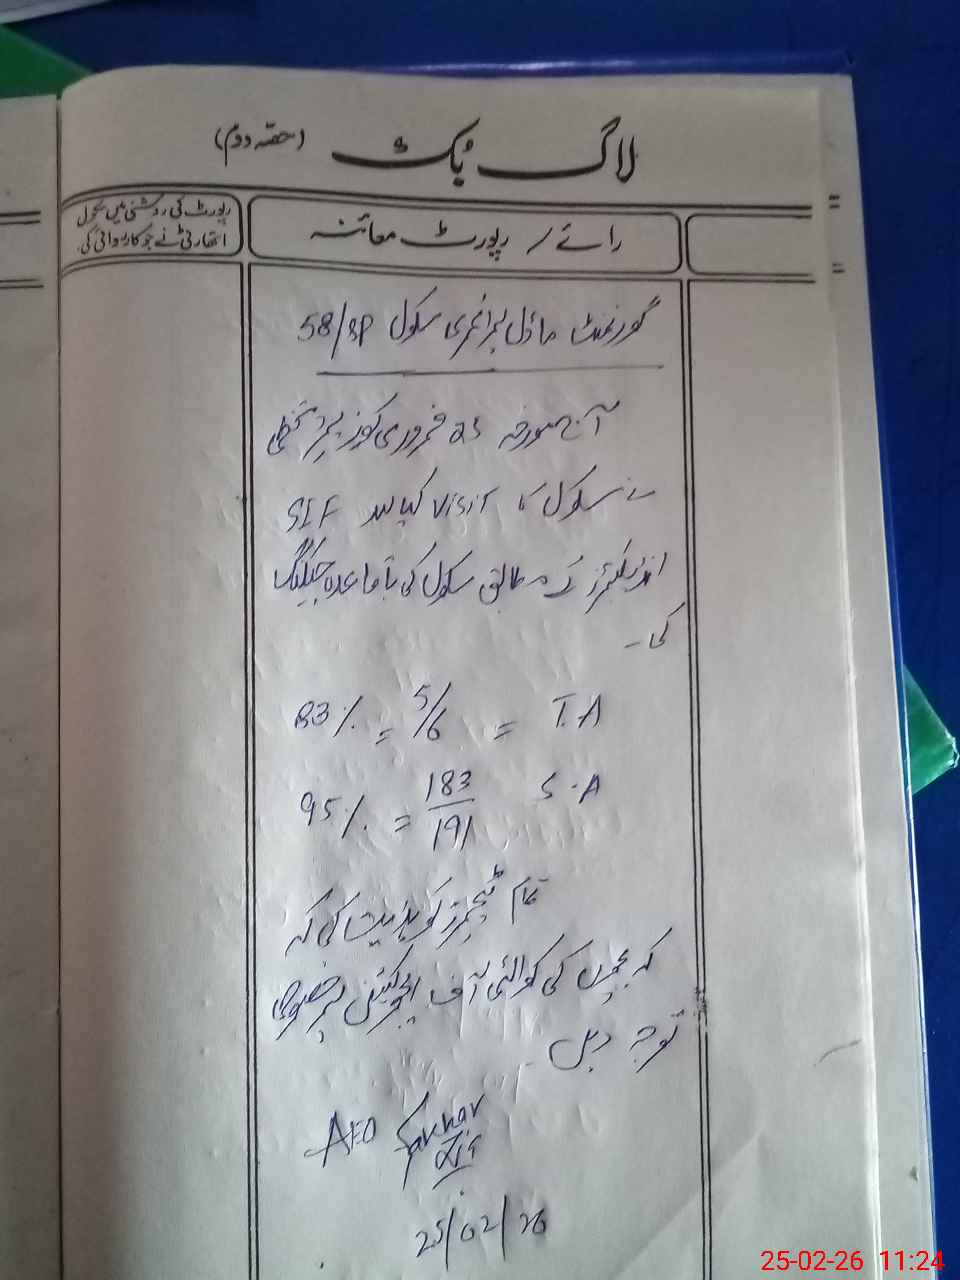 لاگ بُک (حصّہ دوم)
رائے / رپورٹ معائنہ
رپورٹ کی روشنی میں سکول
اتھارٹی نے جو کارروائی کی
گورنمنٹ ماڈل پرائمری سکول 58/SP
آج مورخہ 25 فروری کو زیر دستخطی
نے سکول کا visit کیا اور SIF
انڈیکیٹرز کے مطابق سکول کی باقاعدہ چیکنگ
کی۔
T.A = 5/6 = 83%
S.A 183/191 = 95%
تمام ٹیچرز کو ہدایت کی کہ
کہ بچوں کی کوالٹی آف ایجوکیشن پر خصوصی
توجہ دیں
AEO Fakhar
25/02/26
25-02-26 11:24